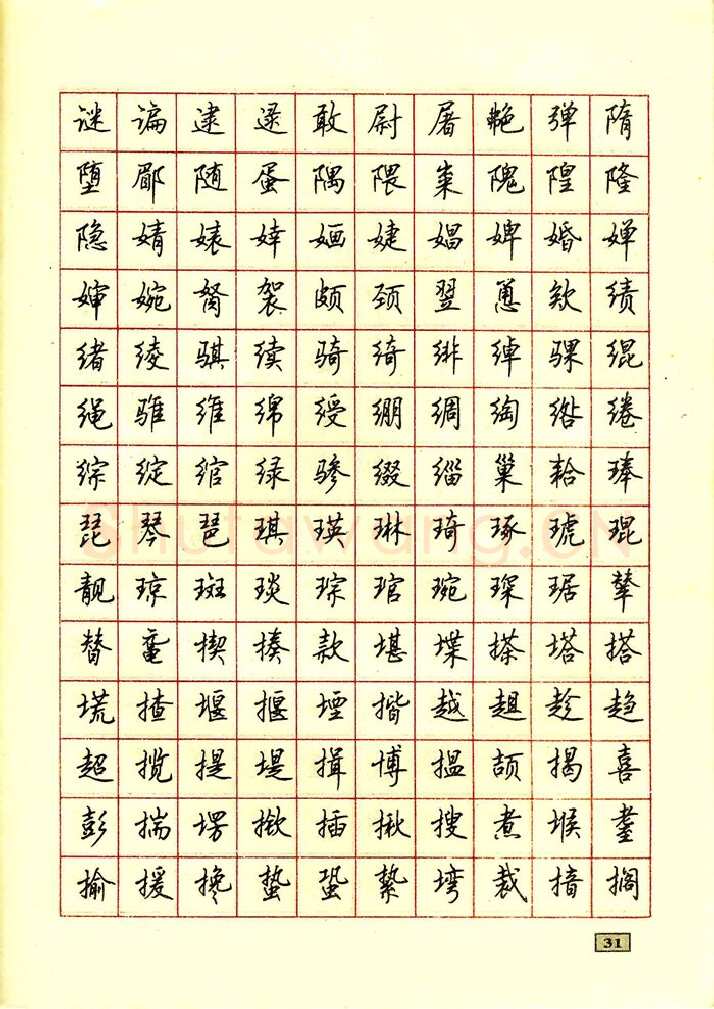 谜 谝 逮 逯 敢 尉 屠 艴 弹 隋
堕 郿 随 蛋 隅 隈 粜 隗 隍 隆
隐 婧 婊 婞 婳 婕 娼 婢 婚 婵
婶 婉 胬 袈 颇 颈 翌 恿 欸 绩
绪 绫 骐 续 骑 绮 绯 绰 骒 绲
绳 骓 维 绵 绶 绷 绸 绹 绺 绻
综 绽 绾 绿 骖 缀 缁 巢 耠 琫
琵 琴 琶 琪 瑛 琳 琦 琢 琥 琨
靓 琼 斑 琰 琮 琯 琬 琛 琚 辇
替 鼋 揳 揍 款 堪 堞 搽 塔 搭
塃 揸 堰 揠 堙 揩 越 趄 趁 趋
超 揽 提 堤 揖 博 揾 颉 揭 喜
彭 揣 塄 揿 插 揪 搜 煮 堠 耋
揄 援 搀 蛰 蛩 絷 塆 裁 揞 搁
31